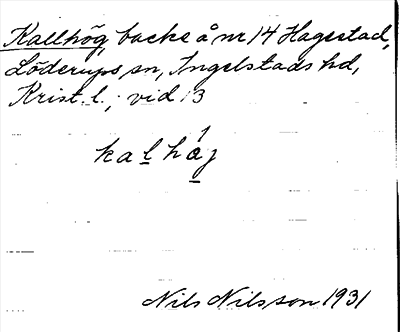 Kallhög, backe å nr 14 Hagestad,
Löderups sn, Ingelstads hd,
Krist. l.; vid 13
kalhǻj
Nils Nilsson 1931